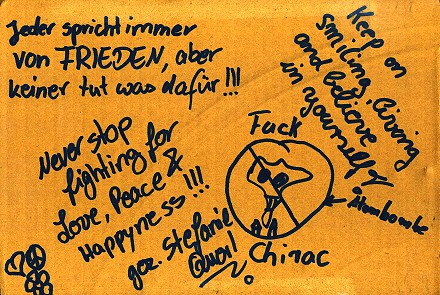 Jeder spricht immer
von FRIEDEN, aber
keiner tut was dafür!!!
Keep on
smiling, Giving
and believe
in yourself
Never stop
fighting for
Love, Peace &
Happyness!!!
gez. Stefanie
Fuck
Chirac
Atombombe